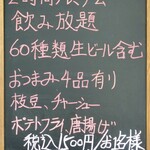 2時間プレミアム
飲み放題
60種類生ビール含む
おつまみ4品有り
枝豆、チャーシュー
ポテトフライ、唐揚げ
税込1500円/お客様